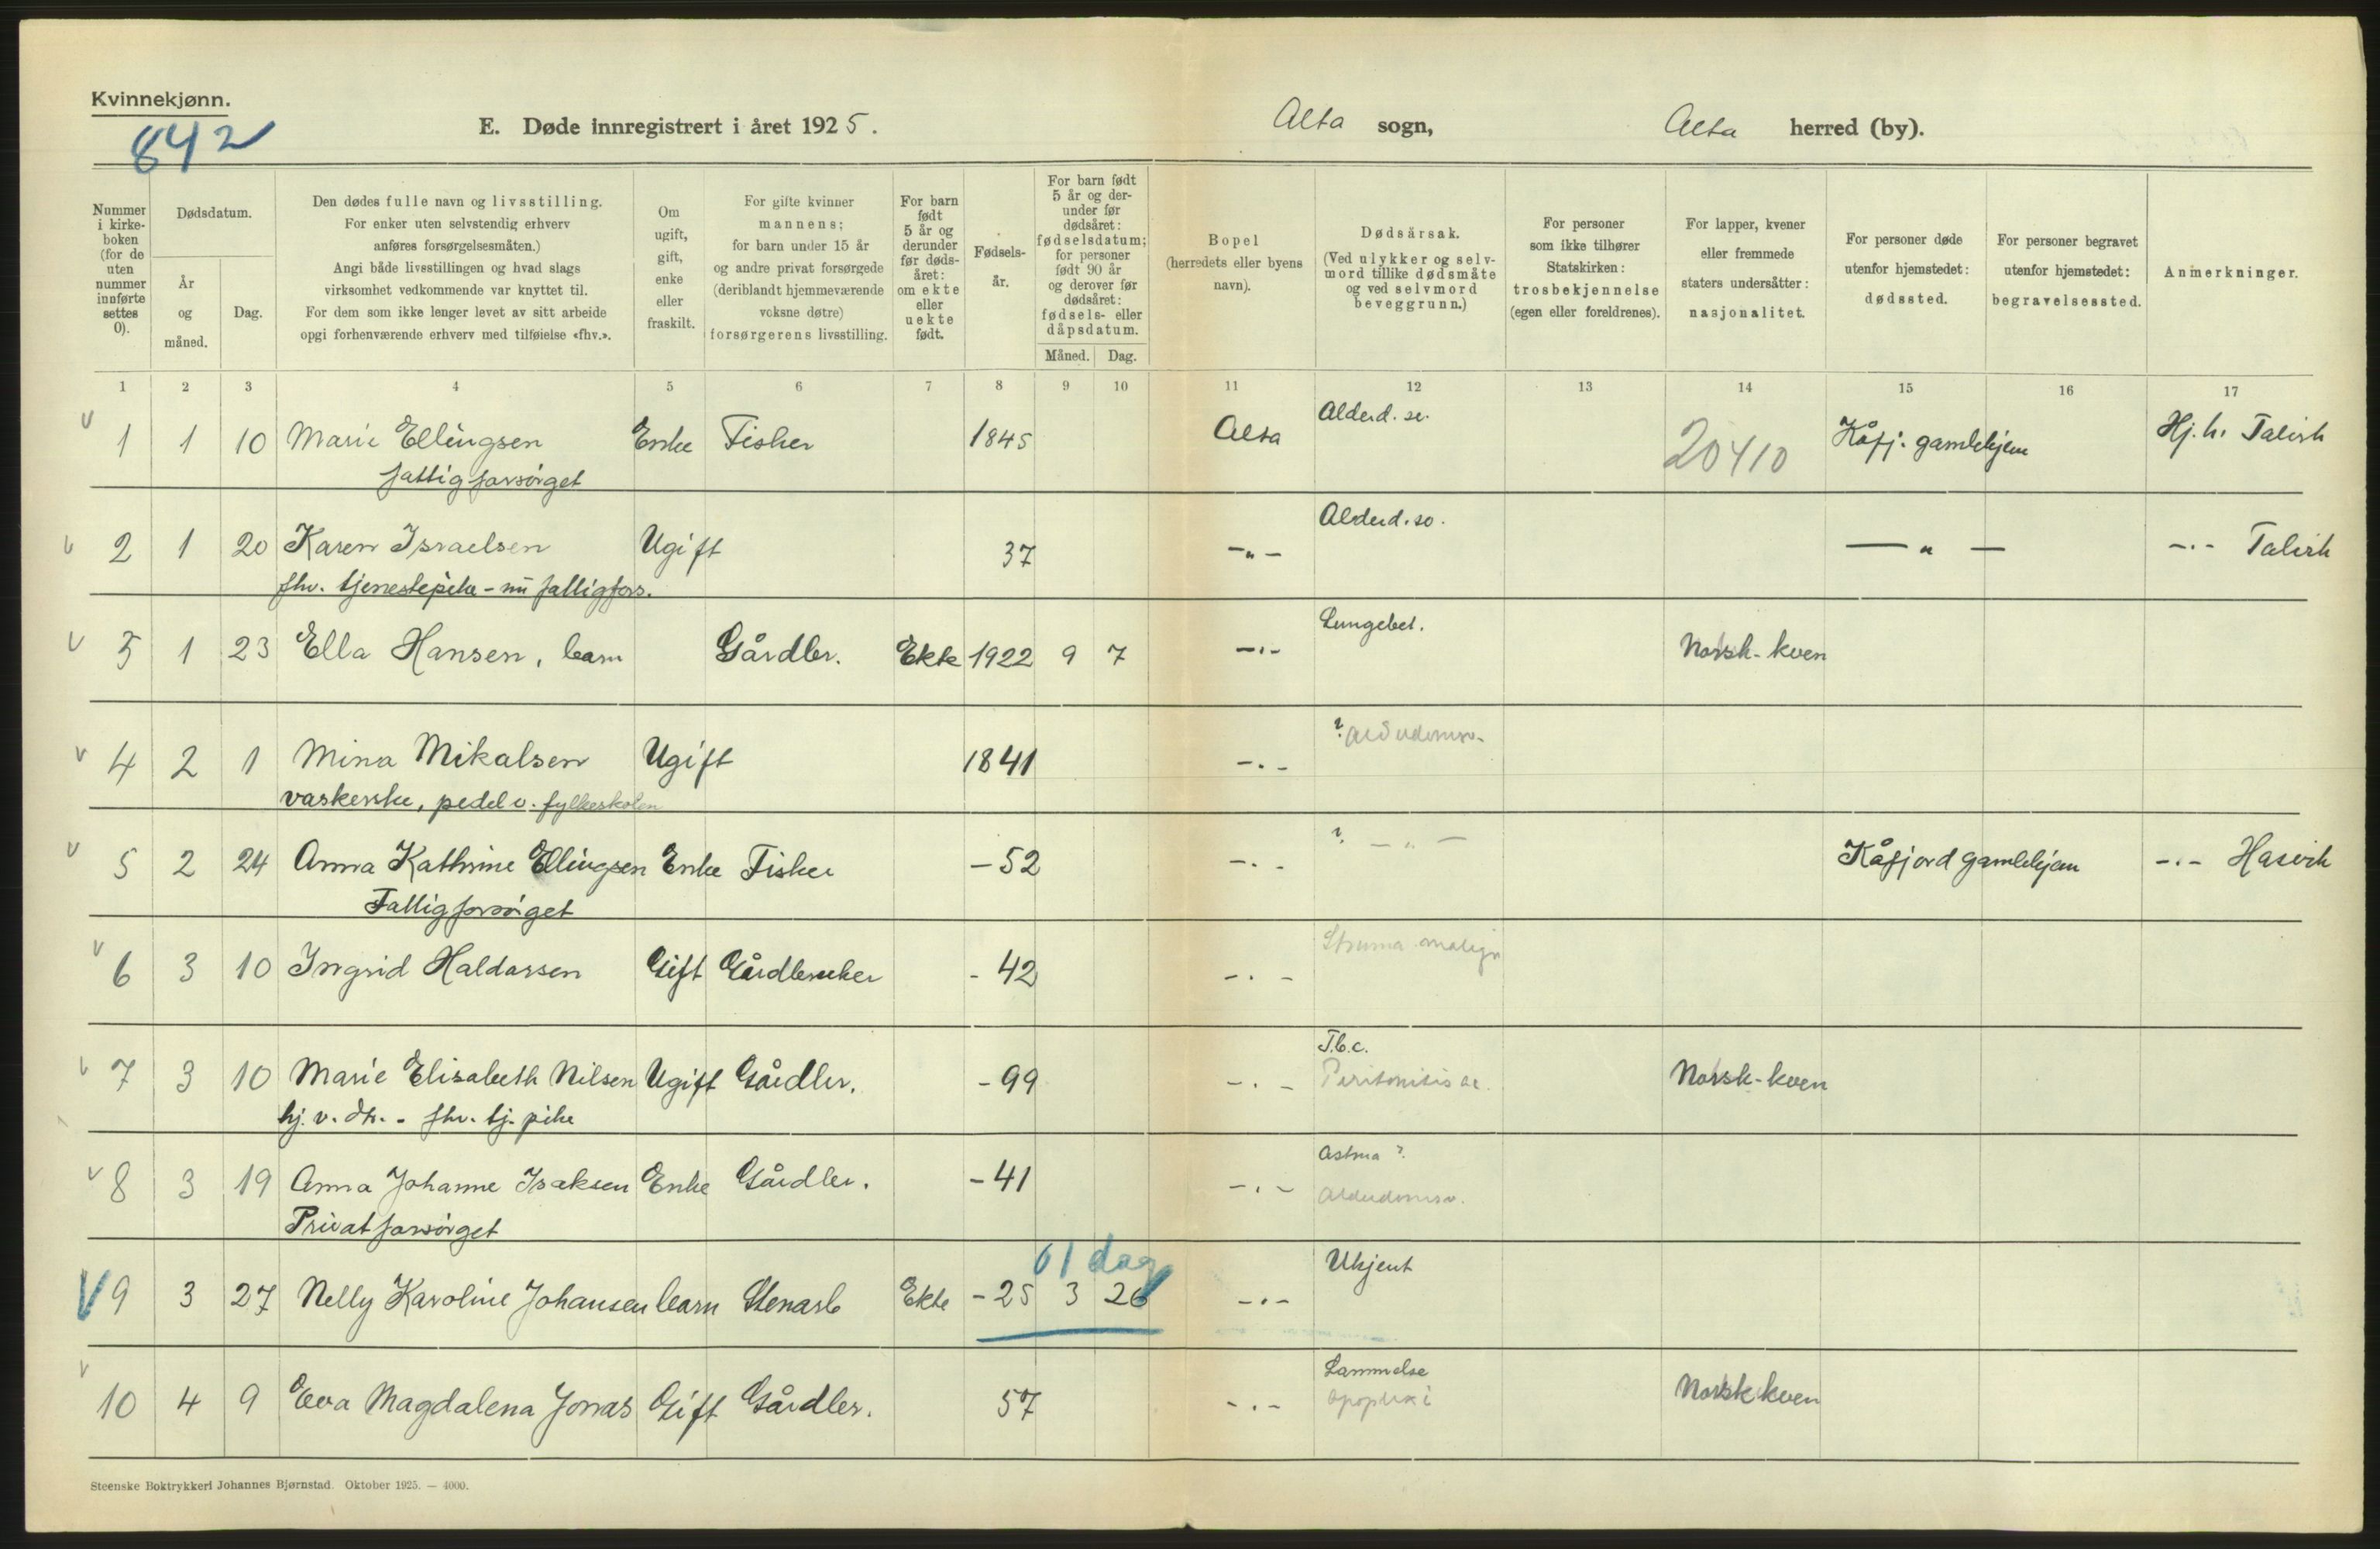 Kvinnekjønn.
842
E. Døde innregistrert i året 1925.
Alta sogn,
Alta herred (by).
Nummer i kirke-boken (for de uten nummer innførte settes 0).
Dødsdatum.
År og måned.
Dag.
Den dødes fulle navn og livsstilling.
For enker uten selvstendig erhverv
anføres forsørgelsesmåten.)
Angi både livsstillingen og hvad slags
virksomhet vedkommende var knyttet til.
For dem som ikke lenger levet av sitt arbeide
opgi forhenværende erhverv med tilføielse «fhv.».
Om ugift, gift, enke eller fraskilt.
For gifte kvinner
mannens;
for barn under 15 år
og andre privat forsørgede
(deriblandt hjemmeværende
voksne døtre)
forsørgerens livsstilling.
For barn født 5 år og derunder før døds-året: om ekte eller uekte født.
Fødsels-år.
For barn født 5 år og der-under før dødsåret: fødselsdatum; for personer født 90 år og derover før dødsåret: fødsels- eller dåpsdatum.
Måned. Dag.
Bopel
(herredets eller byens
navn).
Dødsårsak.
(Ved ulykker og selv-
mord tillike dødsmåte
og ved selvmord
beveggrunn.)
For personer
som ikke tilhører
Statskirken:
trosbekjennelse
(egen eller foreldrenes).
For lapper, kvener
eller fremmede
staters undersåtter:
nasjonalitet.
For personer døde
utenfor hjemstedet:
dødssted.
For personer begravet
utenfor hjemstedet:
begravelsessted.
Anmerkninger.
1 2 3 4 5 6 7 8 9 10 11 12 13 14 15 16 17
V 1 1 10 Marie Ellingsen Enke Fisker 1845 Alta Alderd.sv. 20410 Kåfj. gamlehjem Hj.h. Talvik
fattigforsørget
V 2 1 20 Karen Israelsen Ugift 37 -"- Alderd.sv. -"- -"- Talvik
fhv. tjenestepike - nu fattigfors.
V 3 1 23 Ella Hansen, barn Gårdbr. Ekte 1922 9 7 -"- Lungebet. Norsk-kven
V 4 2 1 Mina Mikalsen Ugift 1841 -"- ? Alderdomssv.
vaskerske, pedel v. fylkeskolen
V 5 2 24 Anna Kathrine Ellingsen Enke Fisker -52 -"- ? -"- Kåfjord gamlehjem -"- Hasvik
Fattigforsørget
V 6 3 10 Ingrid Haldorsen Gift Gårdbruker -42 -"- Struma malign
V 7 3 10 Marie Elisabeth Nilsen Ugift Gårdbr. -99 -"- T.b.c. Peritonitis ac. Norsk-kven
hj. v. dtr. - fhv. tj. pike
V 8 3 19 Anna Johanne Isaksen Enke Gårdbr. -41 -"- Astma ? Alderdomssv.
Privat forsørget
01 dag
V 9 3 27 Nelly Karoline Johansen barn Stenarb Ekte -25 3 26 -"- Ukjent
V 10 4 9 Eva Magdalena Jonas Gift Gårdbr. 57 -"- Lammelse apoplexi Norsk kven
Steenske Boktrykkeri Johannes Bjørnstad. Oktober 1925. — 4000.